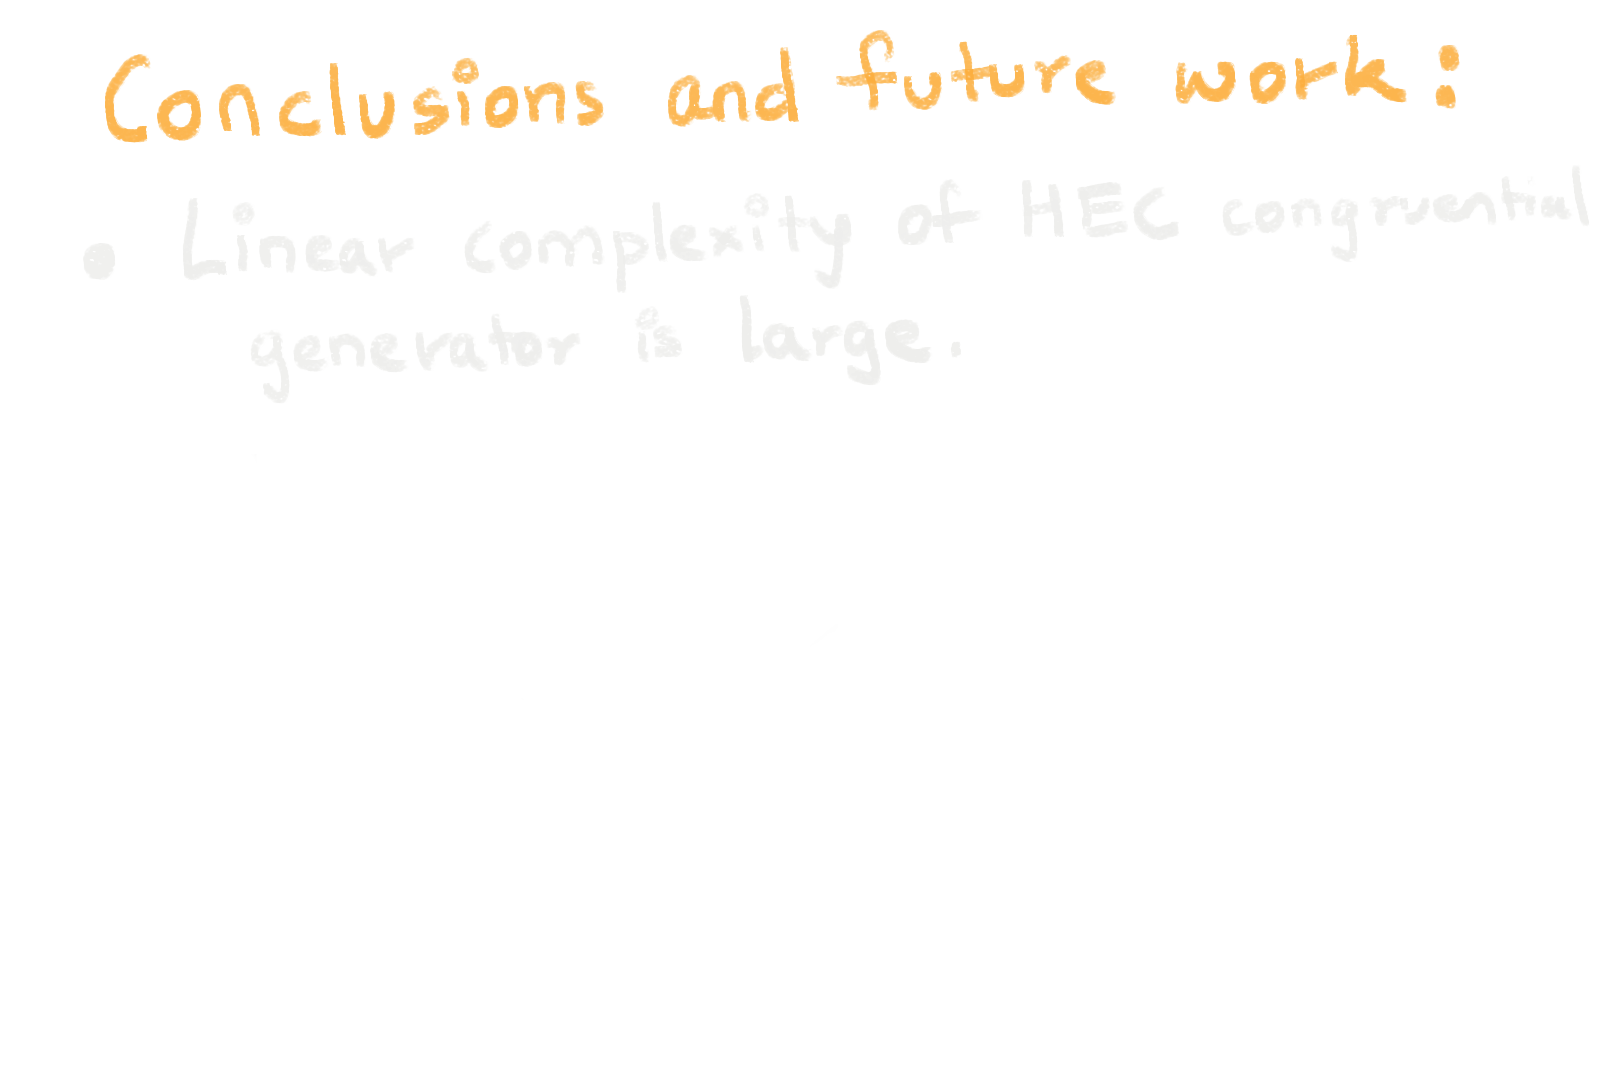 Conclusions and future work:
• Linear complexity of HEC congruential
generator is large.